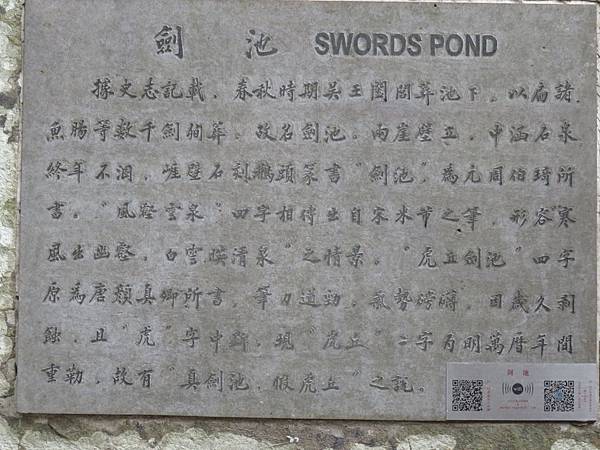 劍 池 SWORDS POND
據史志記載，春秋時期吳王闔閭葬池下，以扁諸、
魚腸等數千劍殉葬，故名劍池。兩崖壁立，中涵石泉
終年不涸，崖壁石刻鵝頭篆書“劍池”，為元周伯琦所
書。“風壑雲泉”四字相傳出自宋米芾之筆，形容“寒
風出幽壑，白雲映清泉”之情景。“虎丘劍池”四字
原為唐顏真卿所書，筆力遒勁，氣勢磅礴，因歲久剥
蝕，且“虎”字中斷，現“虎丘”二字為明萬曆年間
重勒，故有“真劍池，假虎丘”之説。
剑 池